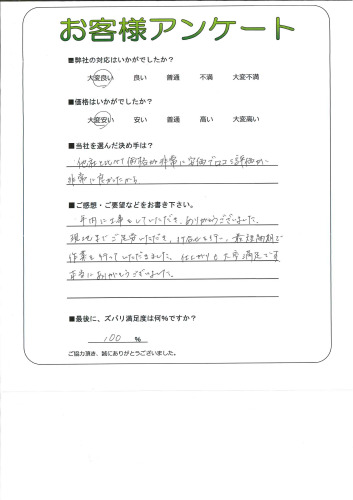 お客様アンケート
■弊社の対応はいかがでしたか？
大変良い 良い 普通 不満 大変不満
■価格はいかがでしたか？
大変安い 安い 普通 高い 大変高い
■当社を選んだ決め手は？
他社と比べて価格が非常に安価で口コミ評価が
非常に良かったから
■ご感想・ご要望などをお書き下さい。
年内に工事をしていただき、ありがとうございました。
現地までご足労いただき、最短納期で
作業を行っていただきました。仕上がりも大変満足です
本当にありがとうございました。
■最後に、ズバリ満足度は何％ですか？
100 ％
ご協力頂き、誠にありがとうございました。